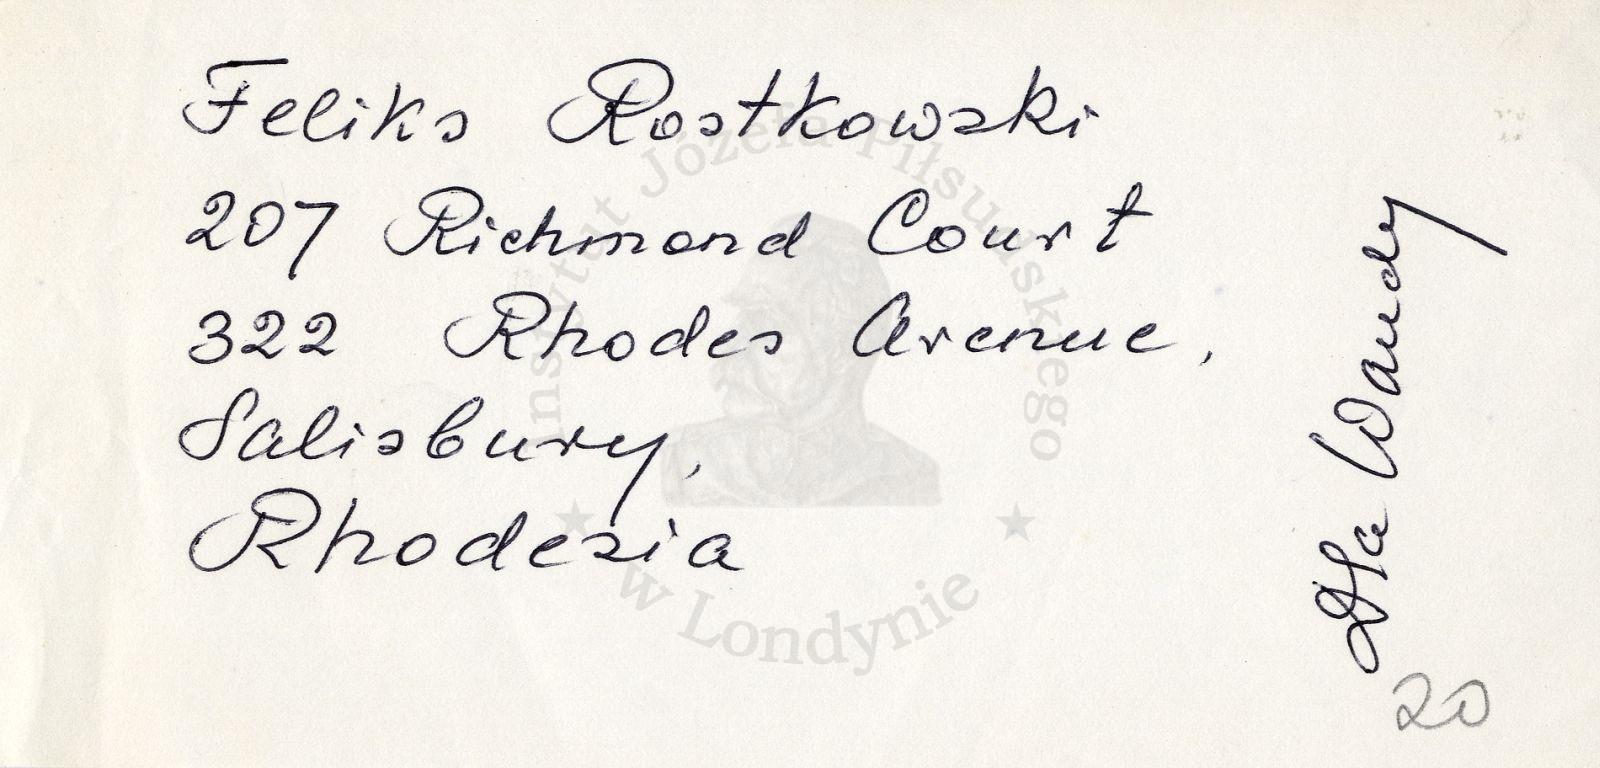 Feliks Rostkowski
207 Richmond Court
322 Rhodes Avenue,
Salisbury,
Rhodesia
Dla Wandy
20
Instytut Józefa Piłsudskiego
w Londynie